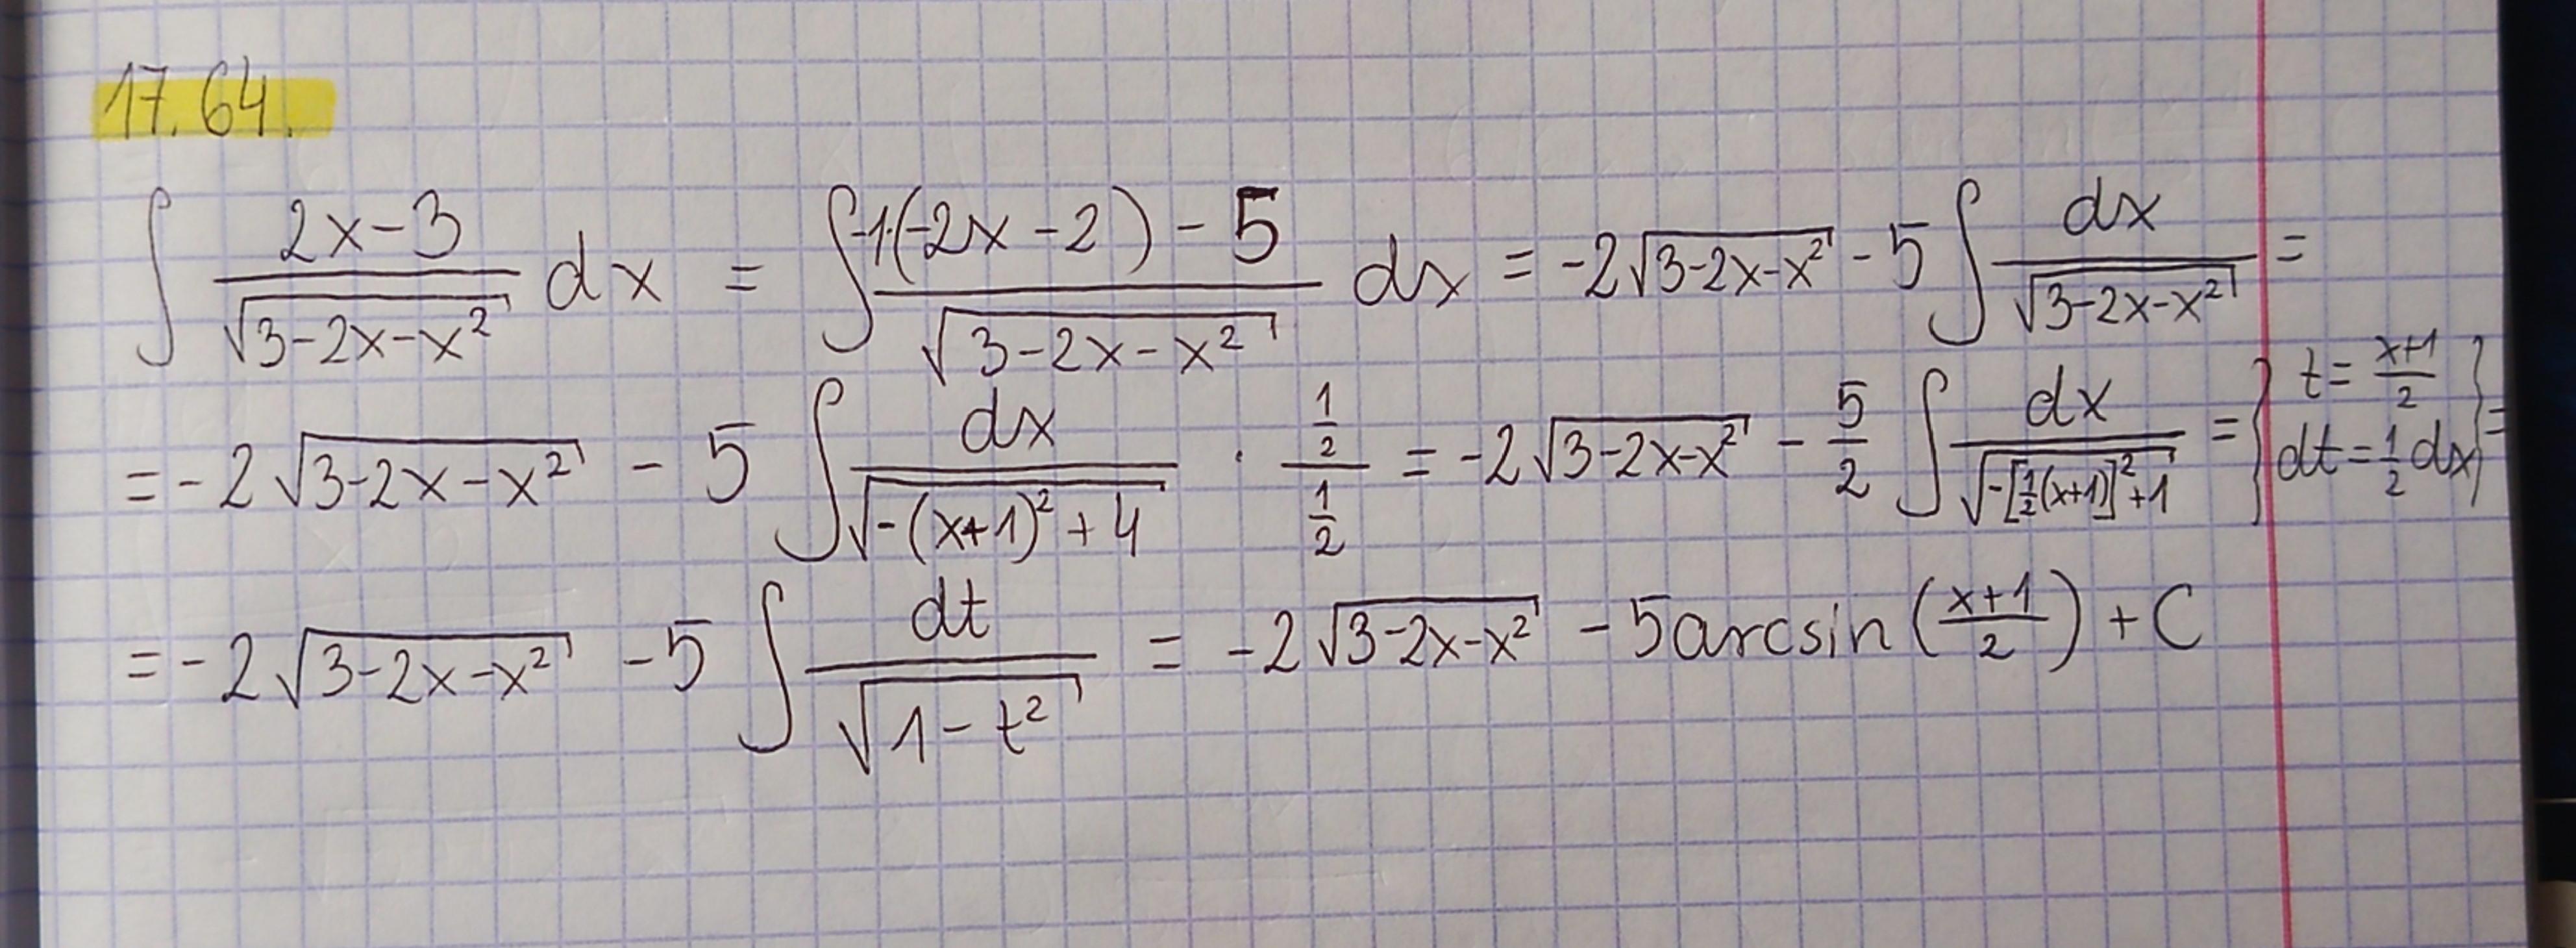 17.64.
∫ (2x-3)/√(3-2x-x²) dx = ∫ (-1·(-2x-2)-5)/√(3-2x-x²) dx = -2√(3-2x-x²) - 5 ∫ dx/√(3-2x-x²) =
= -2√(3-2x-x²) - 5 ∫ dx/√(-(x+1)²+4) · (1/2)/(1/2) = -2√(3-2x-x²) - 5/2 ∫ dx/√(-[1/2(x+1)]²+1) = { t = (x+1)/2, dt = 1/2 dx } =
= -2√(3-2x-x²) - 5 ∫ dt/√(1-t²) = -2√(3-2x-x²) - 5arcsin((x+1)/2) + C